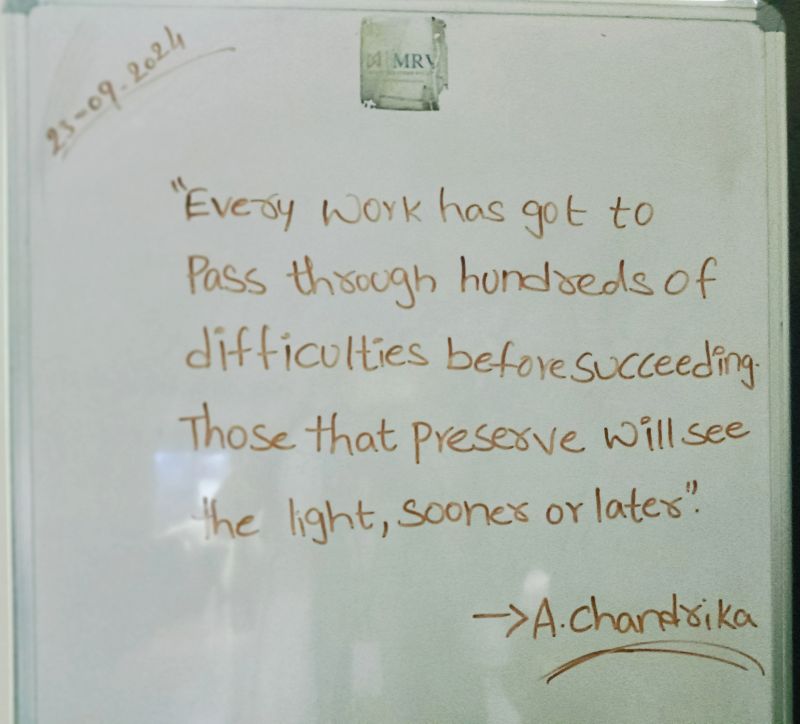 23-09-2024
MRV
"Every work has got to
Pass through hundreds of
difficulties before succeeding.
Those that preserve will see
the light, sooner or later".
→A.chandrika